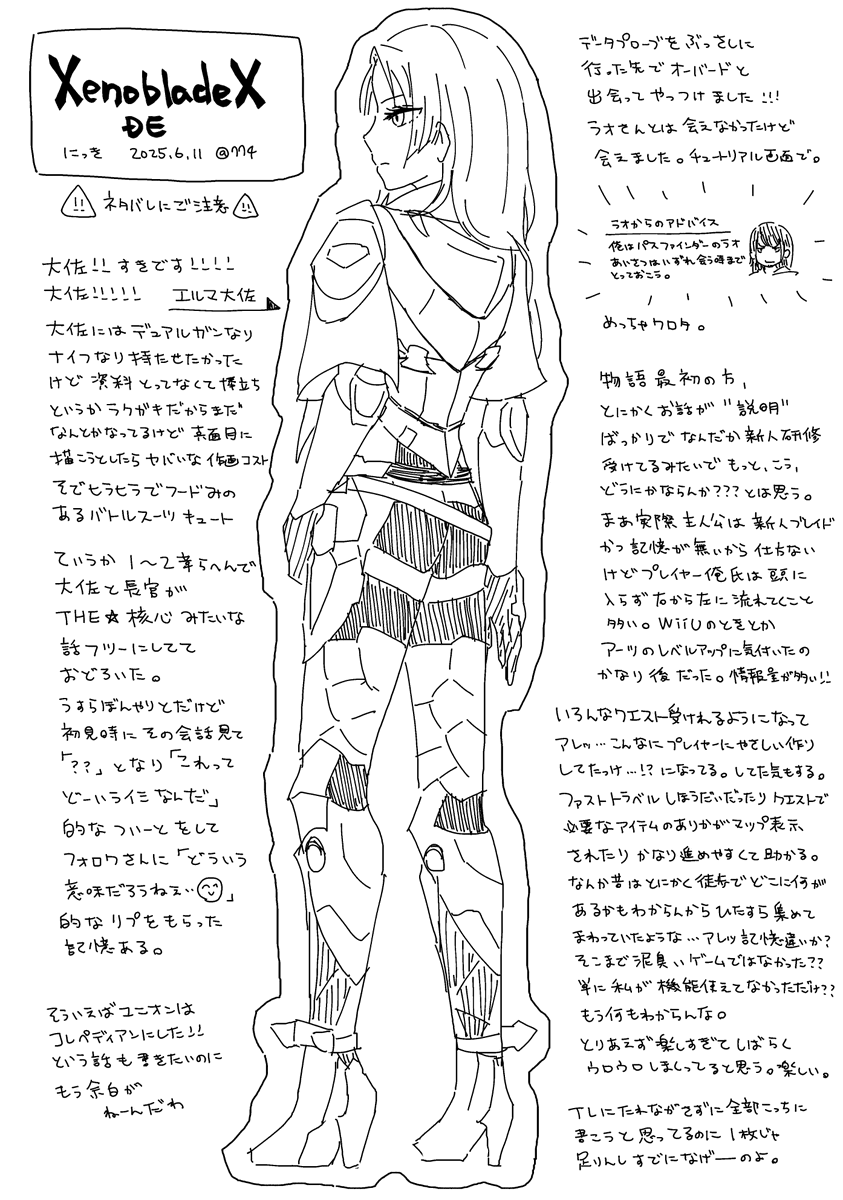 XenobladeX
DE
にっき 2025.6.11 @M4
!! ネタバレにご注意 !!
大佐!! すきです!!!!
大佐!!!!! エルマ大佐
大佐にはデュアルガンなり
ナイフなり持たせたかった
けど 資料とってなくて棒立ち
というかラクガキだからまだ
なんとかなってるけど 真面目に
描こうとしたら ヤバいな 作画コスト
そでヒラヒラでフードみの
あるバトルスーツ キュート
ていうか 1〜2章らへんで
大佐と長官が
THE☆核心 みたいな
話フツーにしてて
おどろいた。
うすらぼんやりとだけど
初見時に その会話見て
「??」となり「これって
どーいうイミなんだ」
的な ついーと をして
フォロワさんに「どういう
意味だろうねぇ‥」
的な リプをもらった
記憶ある。
そういえばユニオンは
コレペディアンにした!!
という話も書きたいのに
もう余白が
ねーんだわ
データプローブをぶっさしに
行った先で オーバードと
出会って やっつけました!!!
ラオさんとは会えなかったけど
会えました。チュートリアル画面で。
ラオからのアドバイス
俺はパスファインダーのラオ
あいさつはいずれ会う時まで
とっておこう。
めっちゃワロタ。
物語最初の方、
とにかくお話が"説明"
ばっかりで なんだか新人研修
受けてるみたいで もっと、こう、
どうにかならんか???とは思う。
まあ実際主人公は新人ブレイド
かつ記憶が無いから仕方ない
けどプレイヤー俺氏は頭に
入らず右から左に流れてくこと
多い。WiiUのときとか
アーツのレベルアップに気付いたの
かなり後だった。情報量が多い!!
いろんなクエスト受けれるようになって
アレッ…こんなにプレイヤーにやさしい作り
してたっけ…!?になってる。してた気もする。
ファストトラベルしほうだいだったりクエストで
必要なアイテムのありかがマップ表示、
されたりかなり進めやすくて助かる。
なんか昔はとにかく徒歩でどこに何が
あるかもわからんからひたすら集めて
まわっていたような…アレッ記憶違いか?
そこまで泥臭いゲームではなかった??
単に私が機能使えてなかっただけ??
もう何もわからんな。
とりあえず楽しすぎてしばらく
ウロウロしまくってると思う。楽しい。
TLにたれながさずに全部こっちに
書こうと思ってるのに1枚じゃ
足りんしすでになげーーのよ。